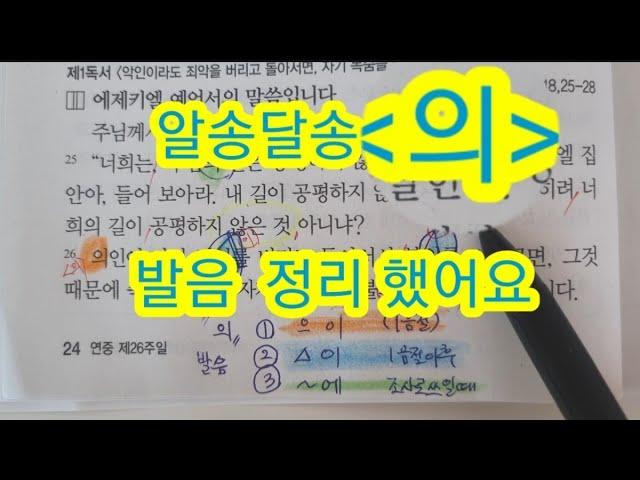 제1독서 〈악인이라도 죄악을 버리고 돌아서면, 자기 목숨을
에제키엘 예언서의 말씀입니다
18,25-28
주님께서
알송달송 <의>
25 “너희는
엘 집
안아, 들어 보아라. 내 길이 공평하지
려 너
희의 길이 공평하지 않은 것 아니냐?
26 의인
면, 그것
때문에
다.
발음 정리 했어요
24 연중 제26주일
"의" 발음
① 으이 (1음절)
② △이 1음절이후
③ ~에 조사로쓰일때